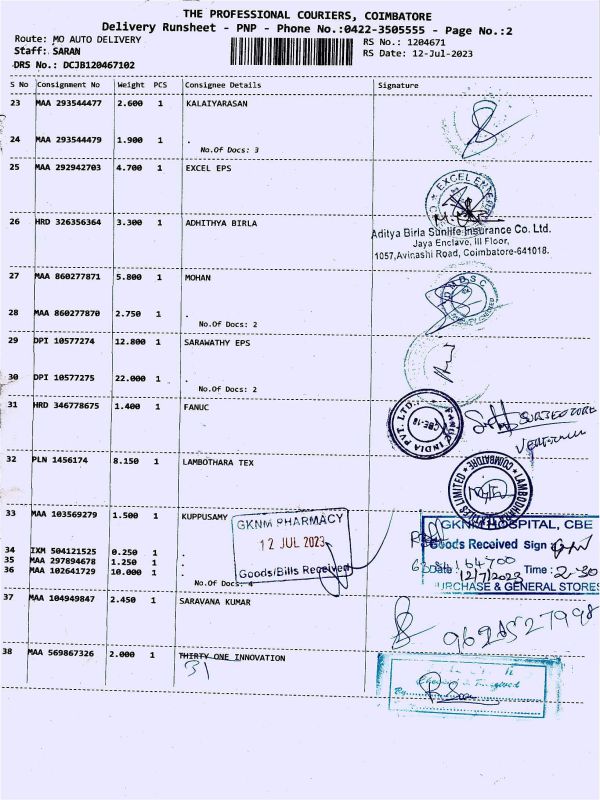 THE PROFESSIONAL COURIERS, COIMBATORE
Delivery Runsheet - PNP - Phone No.:0422-3505555 - Page No.:2
Route: MO AUTO DELIVERY
RS No.: 1204671
Staff: SARAN
RS Date: 12-Jul-2023
DRS No.: DCJB120467102
S No Consignment No Weight PCS Consignee Details Signature
23 MAA 293544477 2.600 1 KALAIYARASAN
24 MAA 293544479 1.900 1 .
No.Of Docs: 3
25 MAA 292942703 4.700 1 EXCEL EPS
EXCEL
26 HRD 326356364 3.300 1 ADHITHYA BIRLA
Aditya Birla Sunlife Insurance Co. Ltd.
Jaya Enclave, III Floor,
1057,Avinashi Road, Coimbatore-641018.
27 MAA 860277871 5.800 1 MOHAN
28 MAA 860277870 2.750 1 .
No.Of Docs: 2
29 DPI 10577274 12.800 1 SARAWATHY EPS
30 DPI 10577275 22.000 1 .
No.Of Docs: 2
31 HRD 346778675 1.400 1 FANUC
FANUC INDIA PVT. LTD.
CBE-18
32 PLN 1456174 8.150 1 LAMBOTHARA TEX
COIMBATORE
LIMITED
33 MAA 103569279 1.500 1 KUPPUSAMY
GKNM PHARMACY
12 JUL 2023
Goods/Bills Received
GKNM HOSPITAL, CBE
Goods Received Sign
Date 12/7/2023 Time: 2-30
PURCHASE & GENERAL STORES
34 IXM 504121525 0.250 1 .
35 MAA 297894678 1.250 1 .
36 MAA 102641729 10.000 1 .
No.Of Docs: 4
37 MAA 104949847 2.450 1 SARAVANA KUMAR
38 MAA 569867326 2.000 1 THIRTY ONE INNOVATION
31